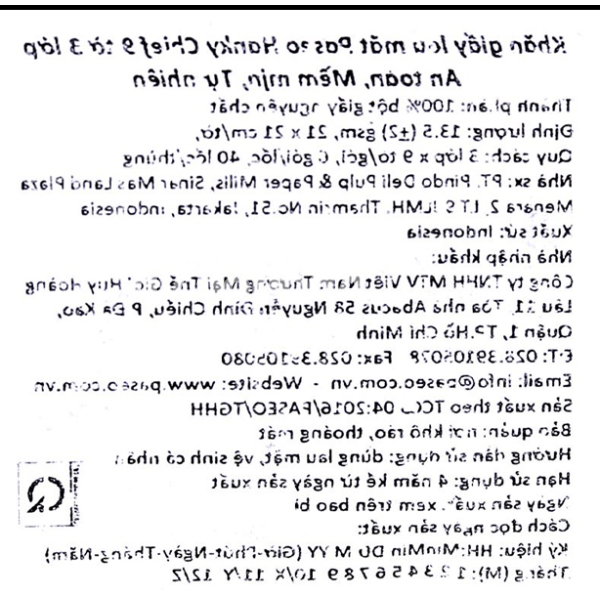 Khăn giấy lau mặt Paseo Hanky Chief 9 tờ 3 lớp
An toàn, Mềm mịn, Tự nhiên
Thành phần: 100% bột giấy nguyên chất
Định lượng: 13.5 (±2) gsm, 21 x 21 cm/tờ,
Quy cách: 3 lớp x 9 tờ/gói, 6 gói/lốc, 40 lốc/thùng
Nhà sx: PT. Pindo Deli Pulp & Paper Mills, Sinar Mas Land Plaza
Menara 2, LT. JLMH. Thamrin No.51, Jakarta, Indonesia
Xuất sứ: Indonesia
Nhà nhập khẩu:
Công ty TNHH MTV Việt Nam Thương Mại Thế Giới Huy Hoàng
Lầu 11, Tòa nhà Abacus 58 Nguyễn Đình Chiểu, P Đa Kao,
Quận 1, TP.Hồ Chí Minh
ĐT: 028.39105078 Fax: 028.39105080
Email: info@paseo.com.vn - Website: www.paseo.com.vn
Sản xuất theo TCCS 04:2016/PASEO/TGHH
Bảo quản: nơi khô ráo, thoáng mát
Hướng dẫn sử dụng: dùng lau mặt, vệ sinh cá nhân
Hạn sử dụng: 4 năm kể từ ngày sản xuất
Ngày sản xuất: xem trên bao bì
Cách đọc ngày sản xuất:
Ký hiệu: HH:MinMin DD M YY (Giờ-Phút-Ngày-Tháng-Năm)
Tháng (M): 1 2 3 4 5 6 7 8 9 10/X 11/Y 12/Z